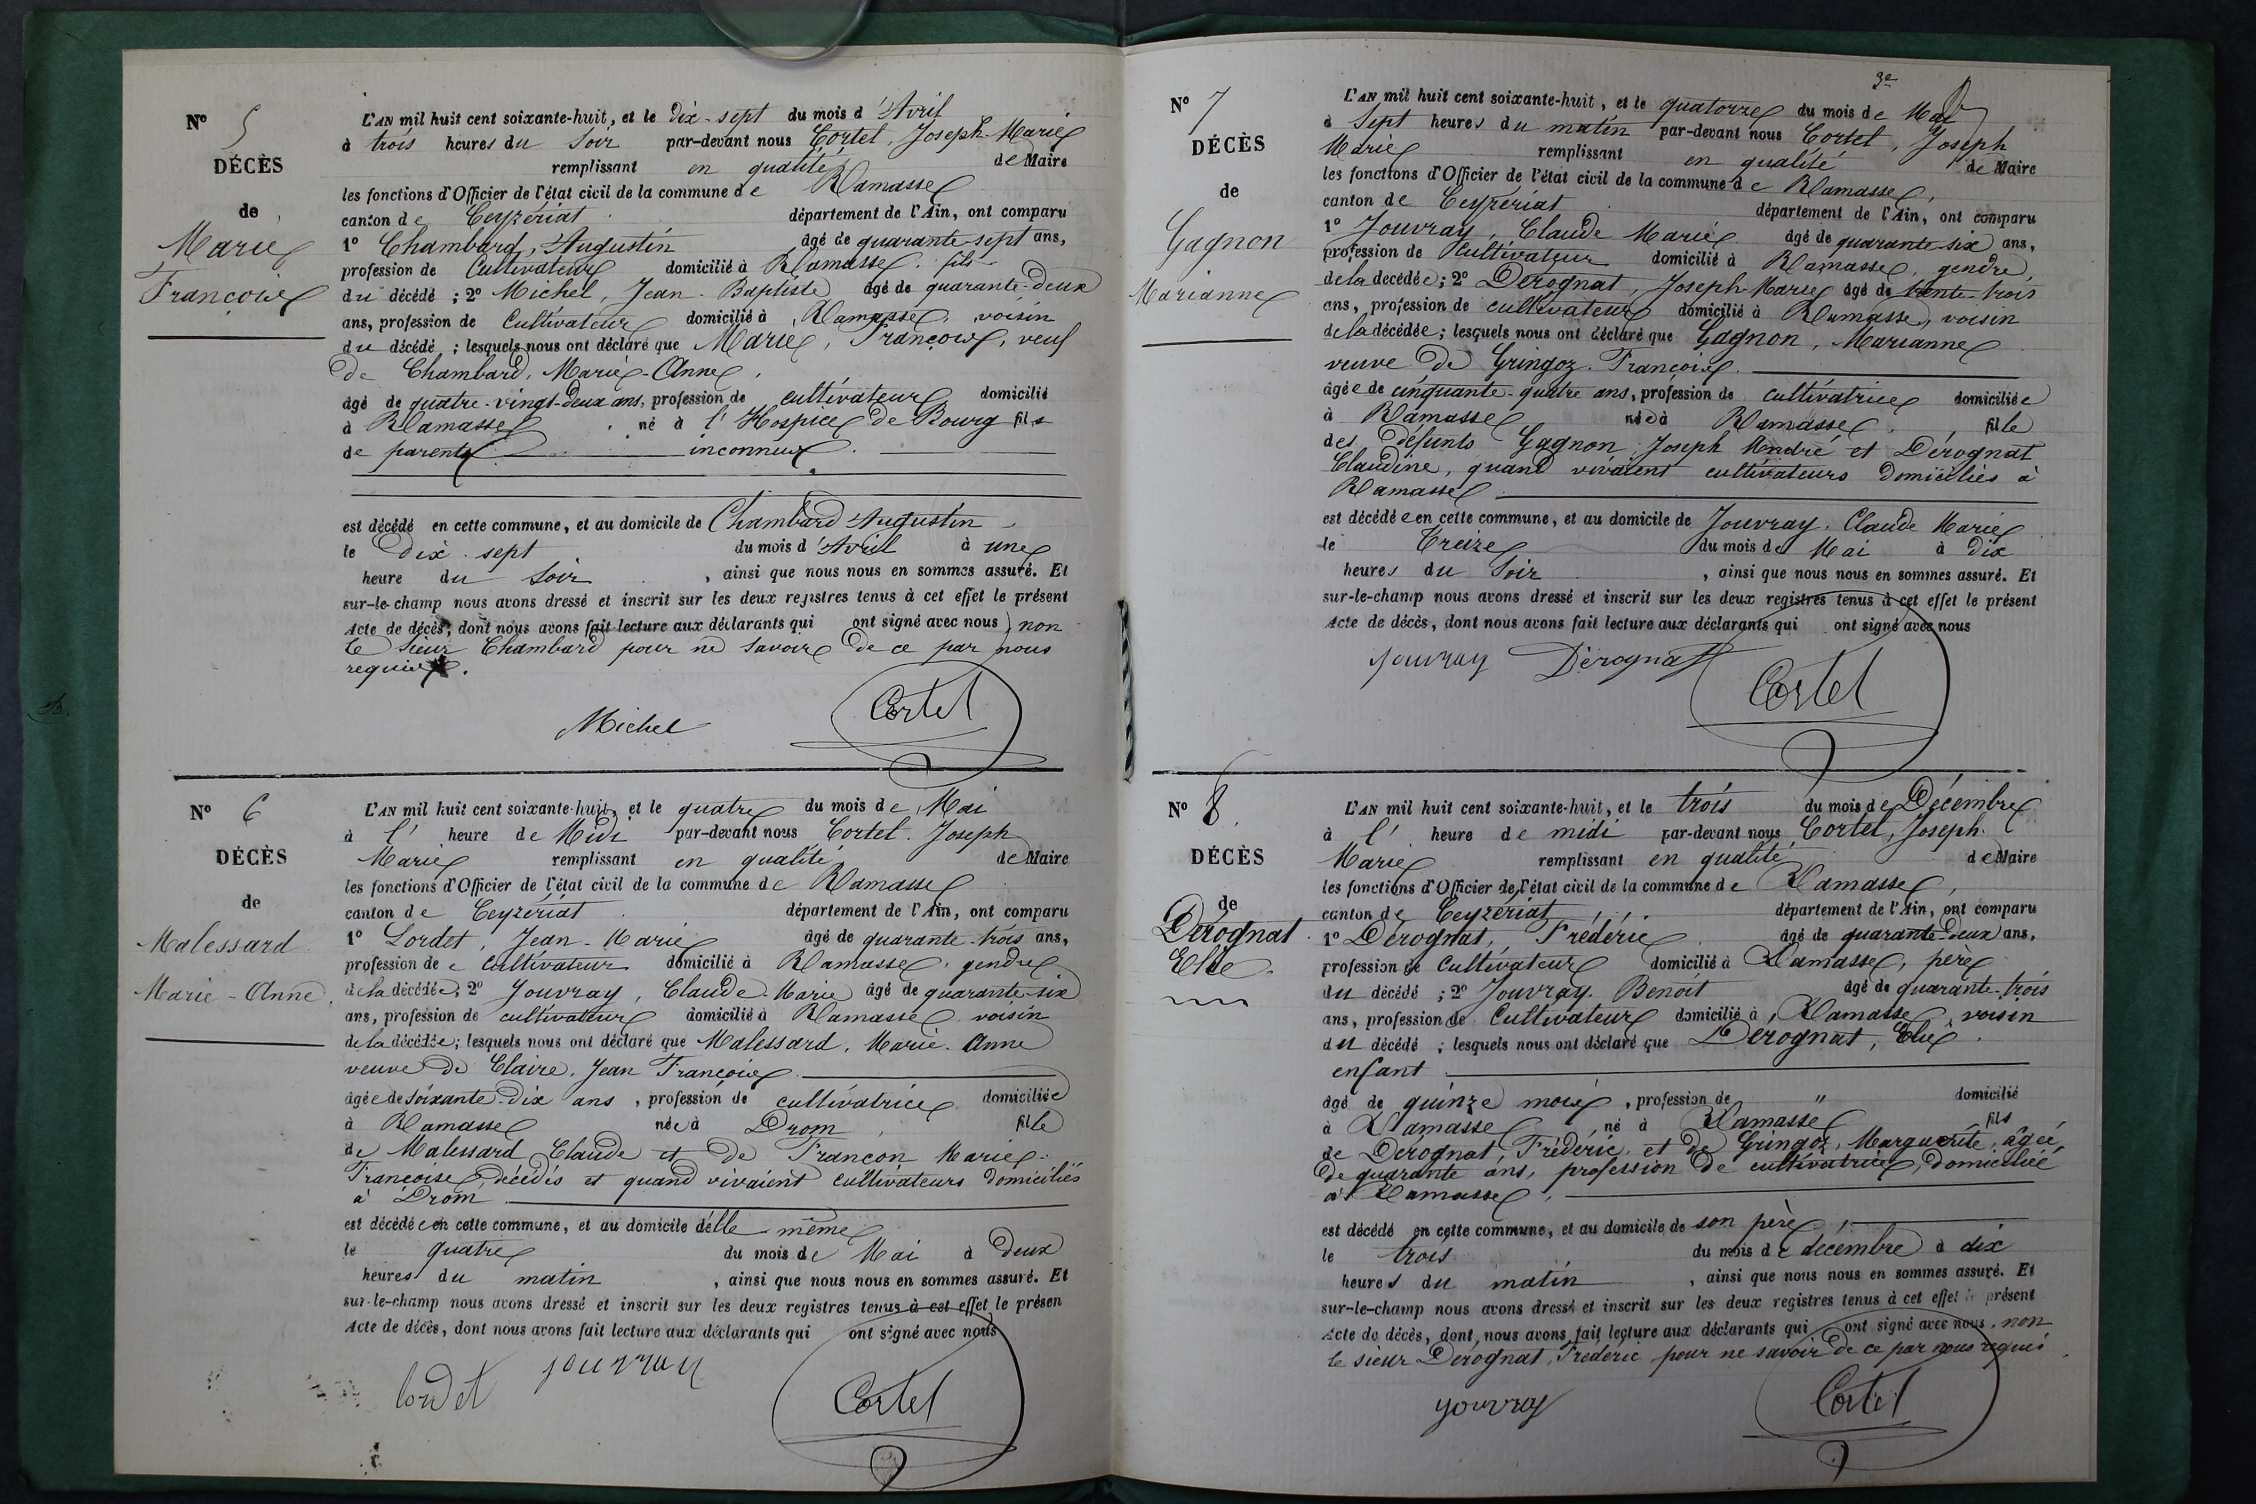 N° 5
DÉCÈS
de
Marie
François
L'AN mil huit cent soixante-huit, et le dix-sept du mois d'Avril
à trois heures du Soir par-devant nous Cortet, Joseph-Marie
remplissant en qualité de Maire
les fonctions d'Officier de l'état civil de la commune de Ramasse
canton de Ceyzériat département de l'Ain, ont comparu
1° Chambard, Augustin âgé de quarante-sept ans,
profession de Cultivateur domicilié à Ramasse, fils
du décédé ; 2° Michel, Jean-Baptiste âgé de quarante-deux
ans, profession de Cultivateur domicilié à Ramasse, voisin
du décédé ; lesquels nous ont déclaré que Marie, François, veuf
de Chambard, Marie-Anne,
âgé de quatre-vingt-deux ans, profession de cultivateur domicilié
à Ramasse, né à l'Hospice de Bourg fils
de parents inconnus.
est décédé en cette commune, et au domicile de Chambard Augustin
le dix-sept du mois d'Avril à une
heure du Soir, ainsi que nous nous en sommes assuré. Et
sur-le-champ nous avons dressé et inscrit sur les deux registres tenus à cet effet le présent
Acte de décès, dont nous avons fait lecture aux déclarants qui ont signé avec nous, non
le sieur Chambard pour ne savoir de ce par nous
requis.
Michel Cortet
N° 6
DÉCÈS
de
Malessard
Marie-Anne
L'AN mil huit cent soixante-huit, et le quatre du mois de Mai
à l'heure de Midi par-devant nous Cortet, Joseph
Marie remplissant en qualité de Maire
les fonctions d'Officier de l'état civil de la commune de Ramasse
canton de Ceyzériat département de l'Ain, ont comparu
1° Lordet, Jean-Marie âgé de quarante-trois ans,
profession de cultivateur domicilié à Ramasse, gendre
de la décédée, 2° Jouvray, Claude-Marie âgé de quarante-six
ans, profession de cultivateur domicilié à Ramasse voisin
de la décédée; lesquels nous ont déclaré que Malessard, Marie-Anne
veuve de Claire, Jean François
âgée de soixante-dix ans, profession de cultivatrice domiciliée
à Ramasse née à Drom, fille
de Malessard Claude et de Francon Marie-
Françoise, décédés et quand vivaient cultivateurs domiciliés
à Drom
est décédée en cette commune, et au domicile d'elle-même
le quatre du mois de Mai à deux
heures du matin, ainsi que nous nous en sommes assuré. Et
sur-le-champ nous avons dressé et inscrit sur les deux registres tenus à cet effet le présen
Acte de décès, dont nous avons fait lecture aux déclarants qui ont signé avec nous
lordet jouvray Cortet
3e
N° 7
DÉCÈS
de
Gagnon
Marianne
L'AN mil huit cent soixante-huit, et le quatorze du mois de Mai
à Sept heures du matin par-devant nous Cortet, Joseph
Marie remplissant en qualité de Maire
les fonctions d'Officier de l'état civil de la commune de Ramasse,
canton de Ceyzériat département de l'Ain, ont comparu
1° Jouvray, Claude Marie âgé de quarante-six ans,
profession de Cultivateur domicilié à Ramasse, gendre,
de la décédée; 2° Dérognat, Joseph-Marie âgé de trente-trois
ans, profession de cultivateur domicilié à Ramasse, voisin
de la décédée; lesquels nous ont déclaré que Gagnon, Marianne
veuve de Gringoz François
âgée de cinquante-quatre ans, profession de cultivatrice domiciliée
à Ramasse née à Ramasse, fille
des défunts Gagnon Joseph André et Dérognat
Claudine, quand vivaient cultivateurs domiciliés à
Ramasse
est décédée en cette commune, et au domicile de Jouvray, Claude Marie
le treize du mois de Mai à dix
heures du Soir, ainsi que nous nous en sommes assuré. Et
sur-le-champ nous avons dressé et inscrit sur les deux registres tenus à cet effet le présent
Acte de décès, dont nous avons fait lecture aux déclarants qui ont signé avec nous
jouvray Dérognat Cortet
N° 8
DÉCÈS
de
Dérognat
Elie.
L'AN mil huit cent soixante-huit, et le trois du mois de Décembre
à l'heure de midi par-devant nous Cortet, Joseph-
Marie remplissant en qualité de Maire
les fonctions d'Officier de l'état civil de la commune de Ramasse,
canton de Ceyzériat département de l'Ain, ont comparu
1° Dérognat, Frédéric âgé de quarante-deux ans,
profession de Cultivateur domicilié à Ramasse, père
du décédé ; 2° Jouvray, Benoit âgé de quarante-trois
ans, profession de Cultivateur domicilié à Ramasse, voisin
du décédé ; lesquels nous ont déclaré que Dérognat, Elie
enfant
âgé de quinze mois, profession de " domicilié
à Ramasse, né à Ramasse fils
de Dérognat, Frédéric, et de Gringoz, Marguerite, âgée
de quarante ans, profession de cultivatrice, domiciliée
à Ramasse,
est décédé en cette commune, et au domicile de son père,
le trois du mois de décembre à dix
heures du matin, ainsi que nous nous en sommes assuré. Et
sur-le-champ nous avons dressé et inscrit sur les deux registres tenus à cet effet le présent
Acte de décès, dont nous avons fait lecture aux déclarants qui ont signé avec nous, non
le sieur Dérognat, Frédéric pour ne savoir de ce par nous requis.
jouvray Cortet